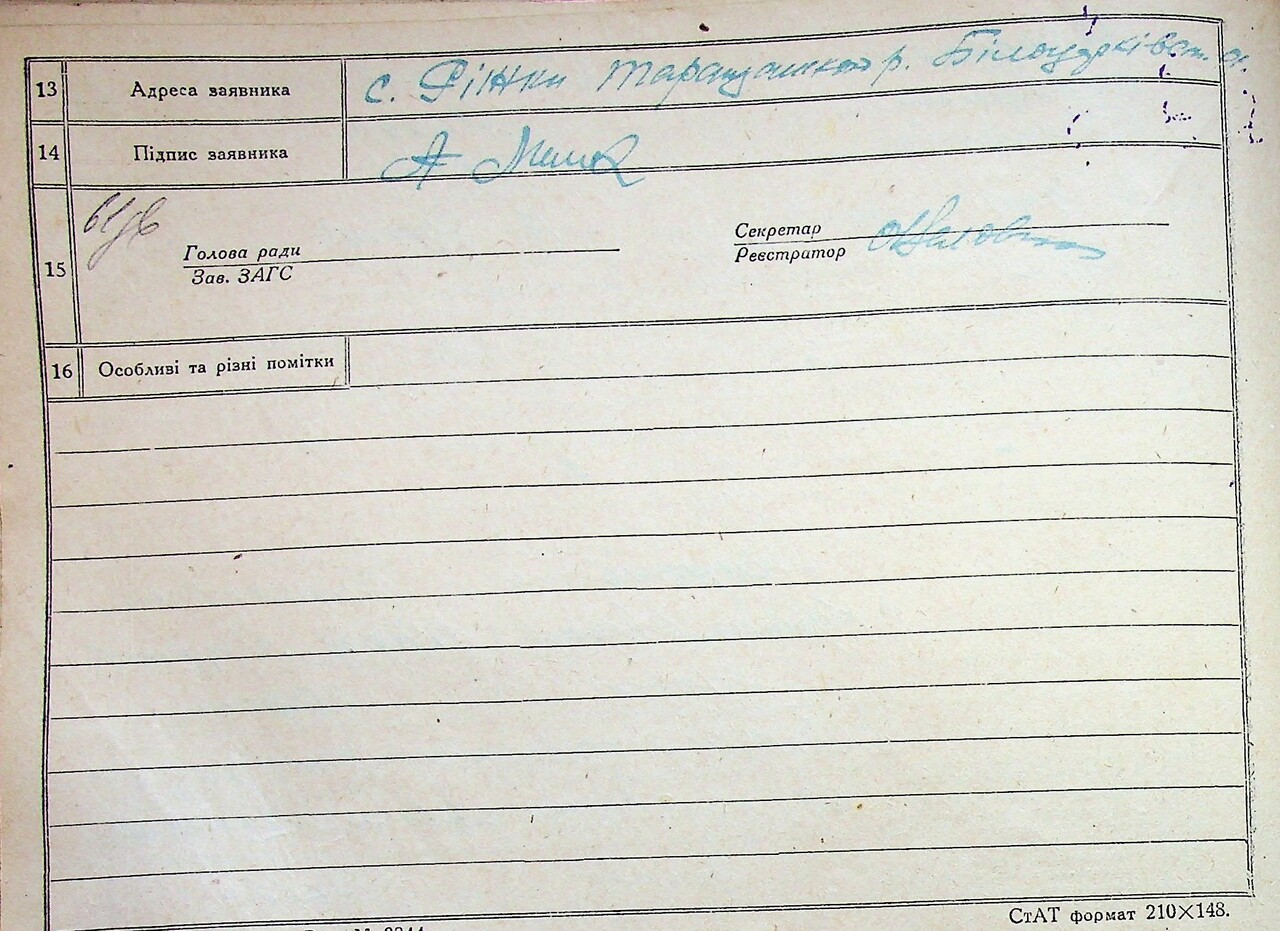 13 Адреса заявника с. Ріжки Таращанського р. Білоцерківськ. о.
14 Підпис заявника А
15
Голова ради
Зав. ЗАГС
Секретар
Реєстратор
16 Особливі та різні помітки
СтАТ формат 210×148.